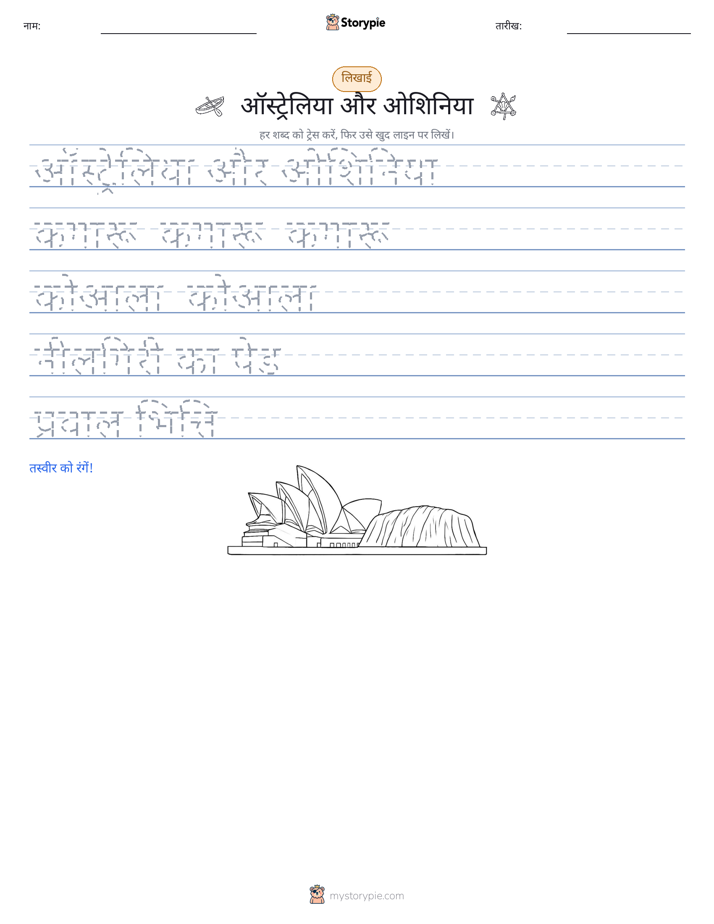 नाम:
Storypie
तारीख:
लिखाई
ऑस्ट्रेलिया और ओशिनिया
हर शब्द को ट्रेस करें, फिर उसे खुद लाइन पर लिखें।
ऑस्ट्रेलिया और ओशिनिया
कंगारू कंगारू कंगारू
कोआला कोआला
नीलगिरी का पेड़
प्रवाल भित्ति
तस्वीर को रंगें!
mystorypie.com